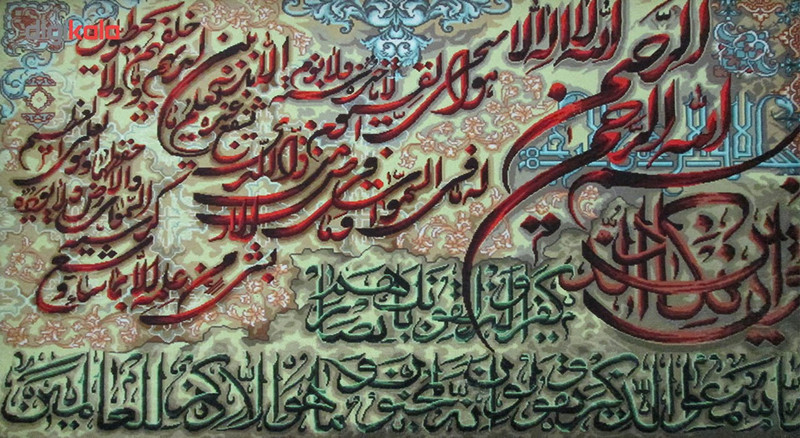 digikala
بسم الله الرحمن الرحیم
الله لا اله الا هو الحی القیوم لا تاخذه سنة ولا نوم
له ما فی السموات وما فی الارض من ذا الذی یشفع عنده الا باذنه یعلم ما بین ایدیهم وما خلفهم ولا یحیطون
بشی من علمه الا بما شاء وسع کرسیه السموات والارض ولا یوده حفظهما وهو العلی العظیم
وان یکاد الذین
کفروا لیزلقونک بابصارهم
لما سمعوا الذکر و یقولون انه لمجنون و ما هو الا ذکر للعالمین